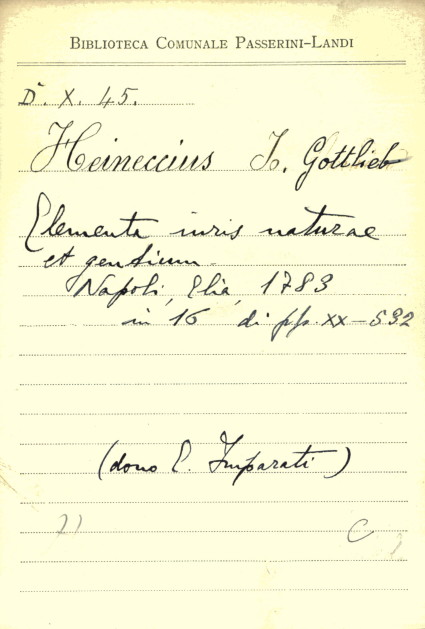 BIBLIOTECA COMUNALE PASSERINI-LANDI
D. X. 45.
Heineccius Io. Gottlieb
Elementa iuris naturae
et gentium
Napoli, Elia, 1783
in 16 di pp. xx-532
(dono E. Imparati)
C